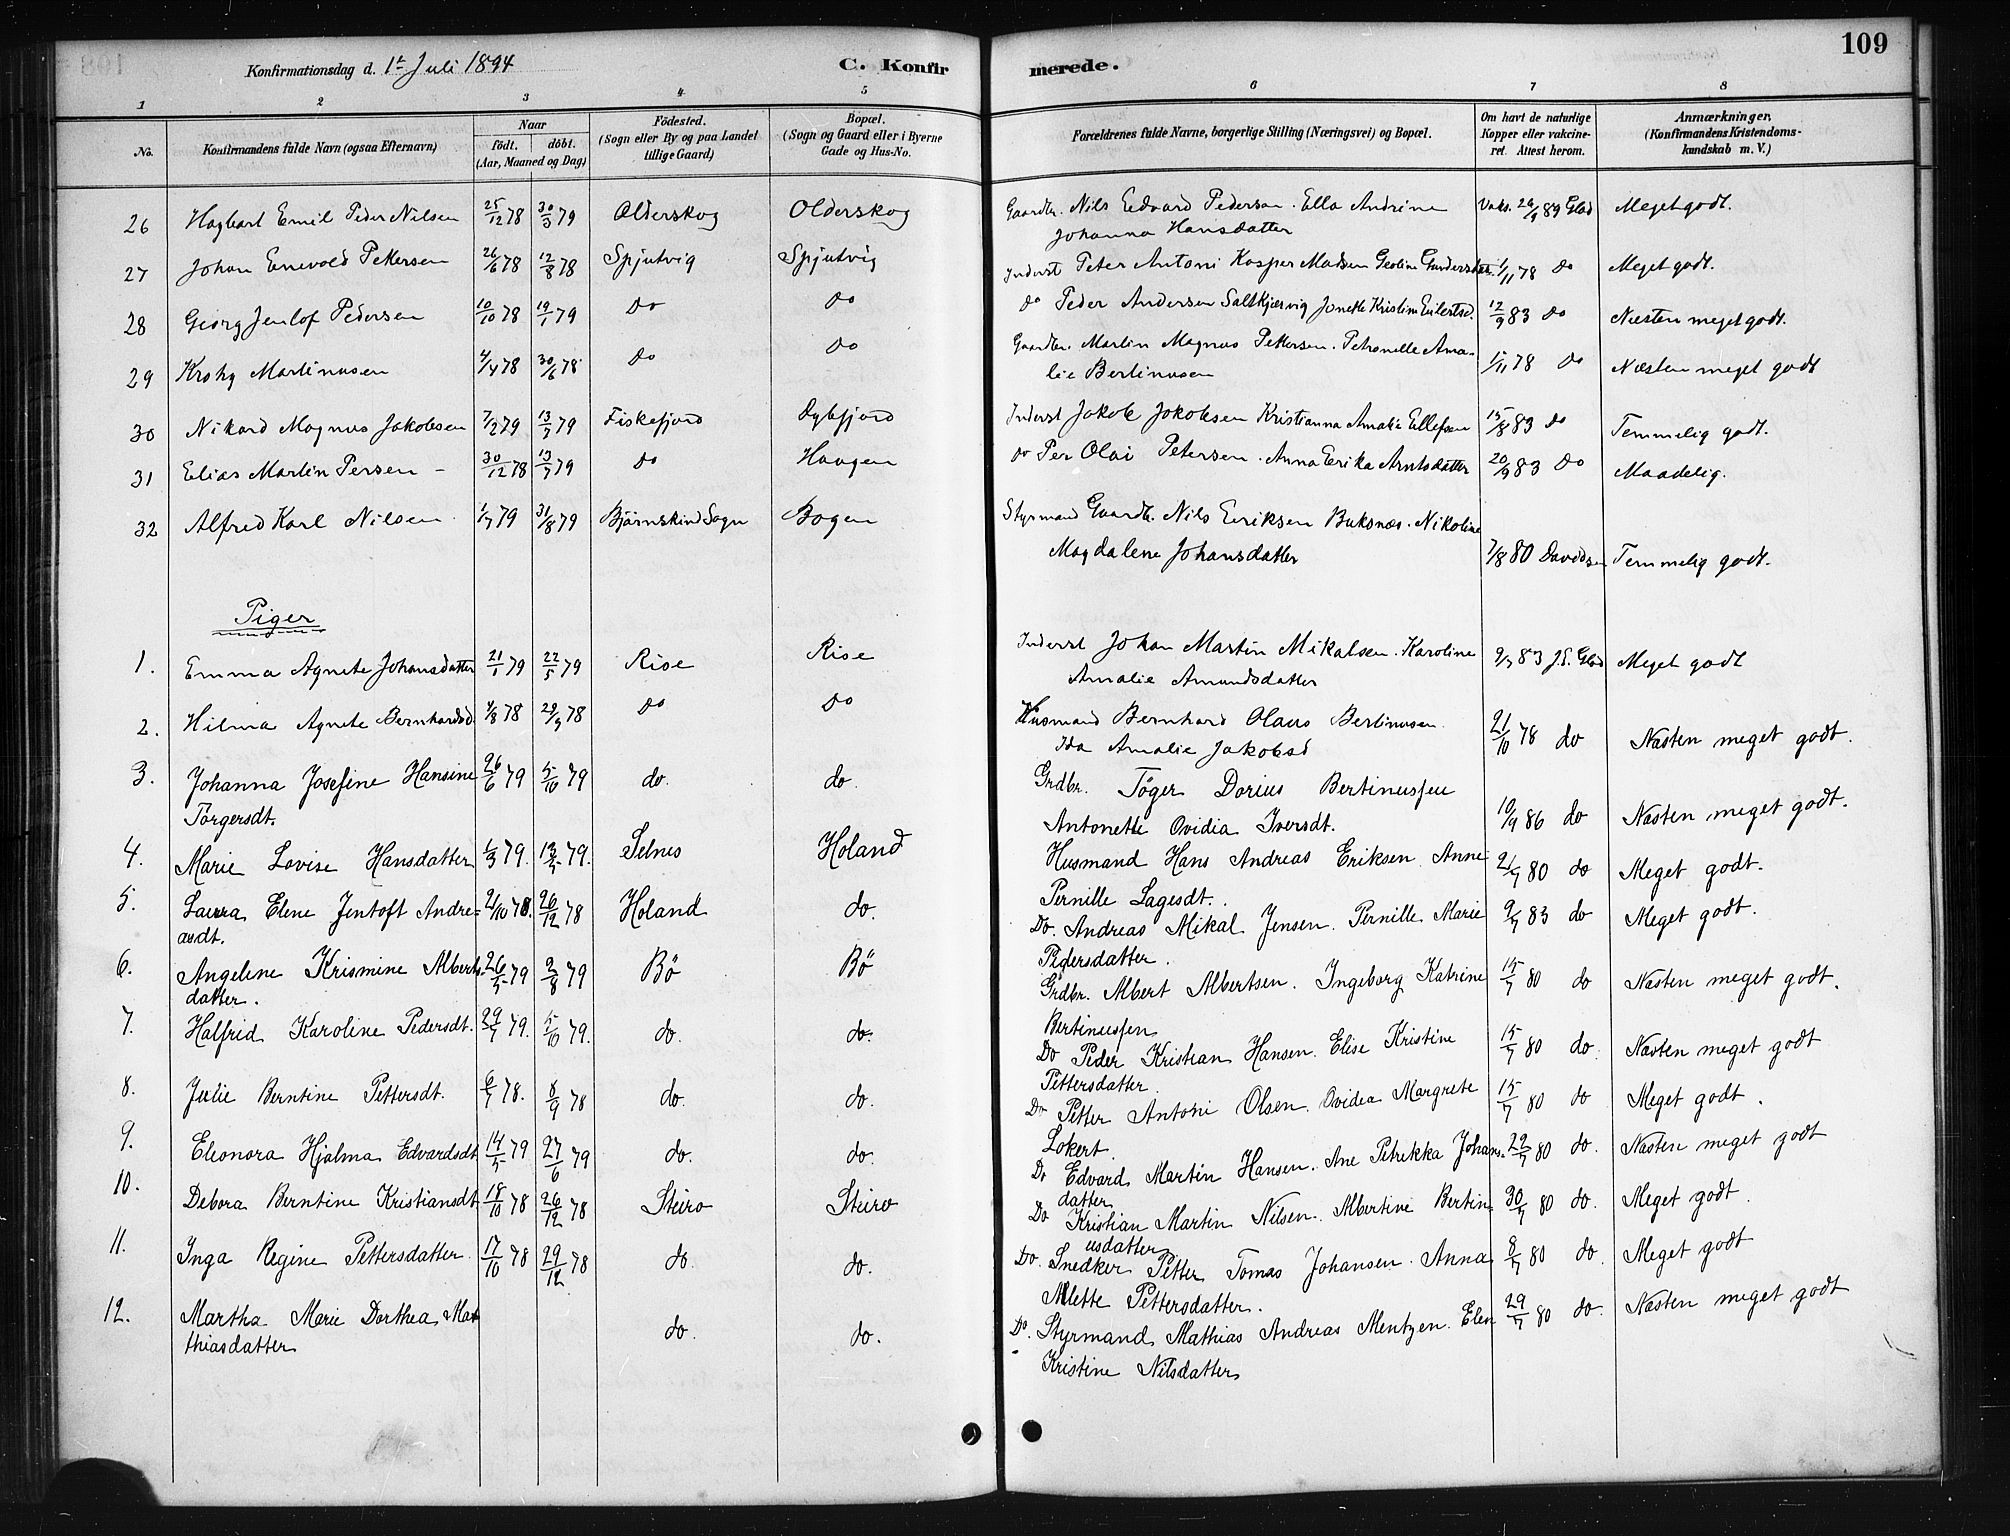 109
Konfirmationsdag d. 1te Juli 1894
C. Konfirmerede.
1 2 3 4 5 6 7 8
No.
Konfirmandens fulde Navn (ogsaa Efternavn)
Naar
födt. döbt.
(Aar, Maaned og Dag)
Födested.
(Sogn eller By og paa Landet
tillige Gaard)
Bopæl.
(Sogn og Gaard eller i Byerne
Gade og Hus-No.
Forældrenes fulde Navne, borgerlige Stilling (Næringsvei) og Bopæl.
Om havt de naturlige
Kopper eller vakcine-
ret. Attest herom.
Anmærkninger,
(Konfirmandens Kristendoms-
kundskab m. V.)
26 Hagbart Emil Peder Nilsen 25/12 78 30/3 79 Olderskog Olderskog Gaardbr. Nils Edvard Pedersen. Ella Andrine Vaks. 29/9 89 Glad Meget godt.
Johanna Hansdatter
27 Johan Enevold Pettersen 26/6 78 12/8 78 Spjutvig Spjutvig Inderst Peter Antoni Kasper Madsen 1/11 78 do Meget godt.
28 Georg Jentof Pedersen 10/10 78 19/1 79 do do do Peder Andersen Saltkjærvig Jonette Kristine Eilertsd. 12/9 83 do Næsten meget godt.
29 Krohg Martinusen 4/4 78 30/6 78 do do Gaardbr. Martin Magnus Pettersen. Petronelle Ama-
lie Bertinusen 5/11 78 do Næsten meget godt
30 Nikard Magnus Jakobsen 7/2 79 13/7 79 Fiskefjord Dybfjord Inderst Jakob Jakobsen Kristianna Amalie Ellefsen 15/8 83 do Temmelig godt.
31 Elias Martin Persen - 30/12 78 13/7 79 do Haugen do Per Olai Petersen. Anna Erika Arntsdatter 20/9 83 do Maadelig.
32 Alfred Karl Nilsen 1/7 79 31/8 79 Bjørnskind Sogn Bogen Styrmand Gaardb. Nils Eriksen Buksnæs. Nikoline
Magdalena Johansdatter 7/8 80 Davidsen Temmelig godt.
Piger
1. Emma Agnete Johansdatter 21/1 79 22/5 79 Rise Rise Inderst Johan Martin Mikalsen. Karoline 9/7 83 J.S. Glad Meget godt
Amalie Amundsdatter
2. Hilma Agnete Bernhardsd 4/8 78 29/9 78 do do Husmand Bernhard Olaus Bertinusen.
Ida Amalie Jakobsd 21/10 78 do Næsten meget godt.
3. Johanna Josefine Hansine 26/6 79 5/10 79 do. do. Grdbr. Töger Dorius Bertinussen
Törgersdt. Antonette Ovidia Iversdt. 10/9 86 do Næsten meget godt.
4. Marie Lovise Hansdatter 1/3 79. 13/7 79. Selnes Holand Husmand Hans Andreas Eriksen Anne 21/7 80 do Meget godt.
Pernille Lagesdt.
5. Laura Elene Jentoft Andre- 2/10 78. 26/12 78 Holand do. Do. Andreas Mikal Jensen. Pernille Marie 9/7 83 do Meget godt.
asdt. Pedersdatter.
6. Angeline Krismine Alberts- 26/5 79 2/8 79 Bö Bö Grdbr. Albert Albertsen. Ingeborg Katrine 15/7 80 do Næsten meget godt.
datter. Bertinussen
7. Halfrid Karoline Pedersdt. 29/7 79. 5/10 79. do. do. Do Peder Kristian Hansen. Elise Kristine 15/7 80 do. Næsten meget godt
Pettersdatter.
8. Julie Berntine Pettersdt. 6/7 78. 8/9 78 do. do. Do Petter Antoni Olsen. Ovidea Margrete 15/7 80 do Meget godt.
Lokert.
9. Eleonora Hjalma Edvardsdt 14/5 79 27/6 79 do. do. Do Edvard Martin Hansen. Ane Petrikka Johans- 22/7 80 do. Næsten meget godt
datter
10. Debora Berntine Kristiansdt 18/10 78 26/12 78 Steiro Steiro Do Kristian Martin Nilsen. Albertine Bertin- 30/7 80 do. Meget godt.
usdatter
11. Inga Regine Pettersdatter 17/10 78 29/12 78 do. do. Do. Snedker Petter Tomas Johansen. Anna 8/7 80 do. Meget godt
Mette Pettersdatter.
12. Martha Marie Dorthea Mat do. do. Do. Styrmand Mathias Andreas Mentzen. Elen 29/7 80 do. Næsten meget godt
thiasdatter Kristine Nilsdatter